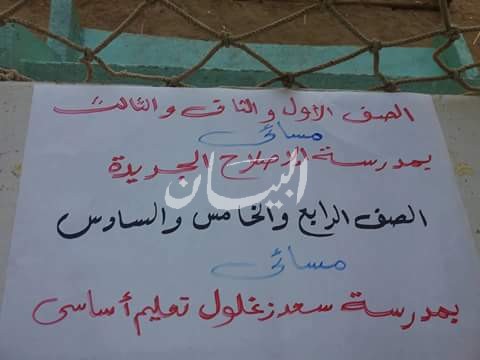 الصف الأول والثانى والثالث
مسائى
بمدرسة الإصلاح الجديدة
البيان
الصف الرابع والخامس والسادس
مسائى
بمدرسة سعد زغلول تعليم أساسى